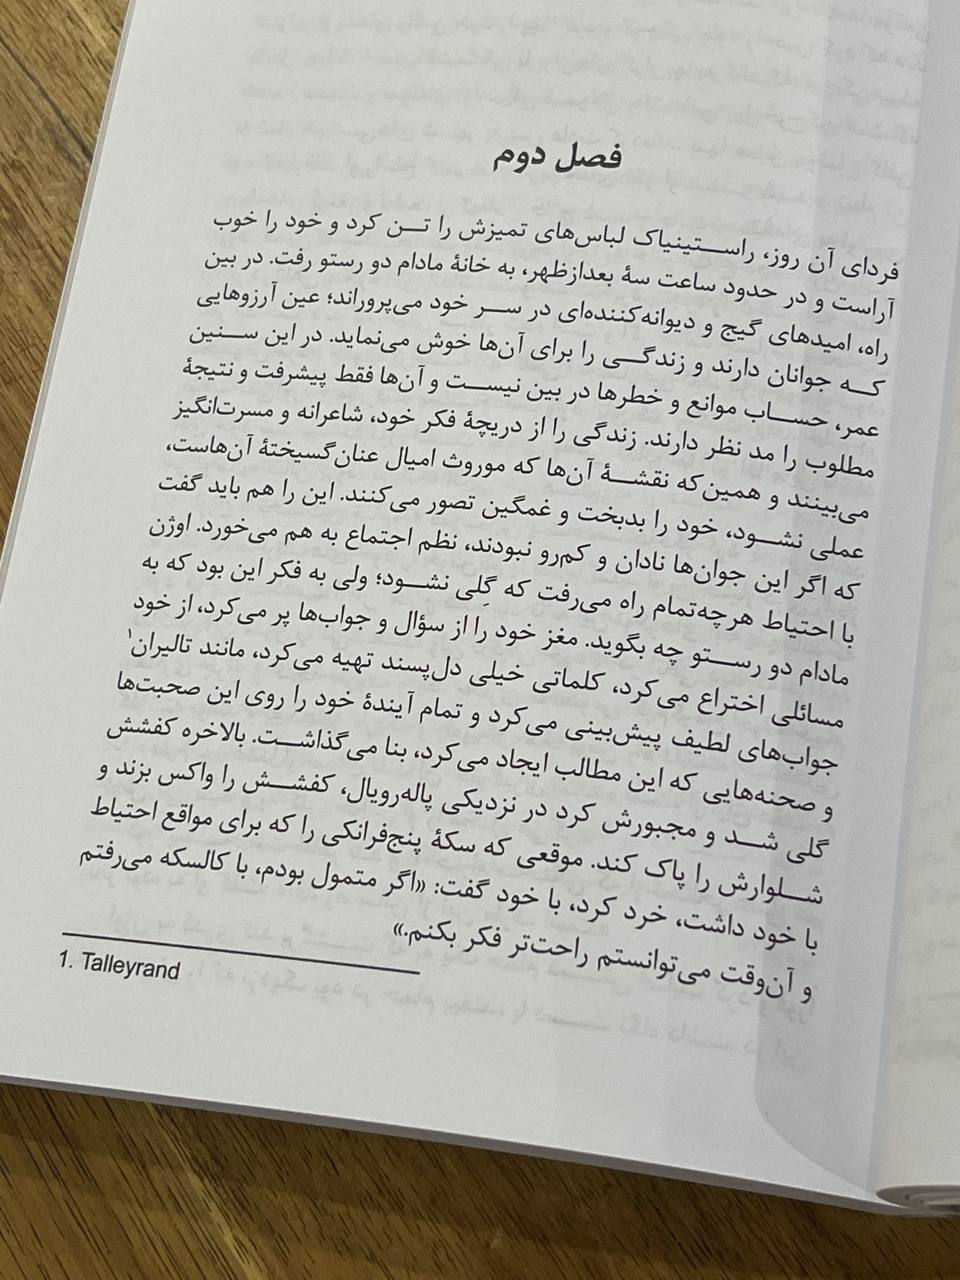 فصل دوم
فردای آن روز، راستینیاک لباس‌های تمیزش را تن کرد و خود را خوب
آراست و در حدود ساعت سهٔ بعدازظهر، به خانهٔ مادام دو رستو رفت. در بین
راه، امیدهای گیج و دیوانه‌کننده‌ای در سر خود می‌پروراند؛ عین آرزوهایی
که جوانان دارند و زندگی را برای آن‌ها خوش می‌نماید. در این سنین
عمر، حساب موانع و خطرها در بین نیست و آن‌ها فقط پیشرفت و نتیجهٔ
مطلوب را مد نظر دارند. زندگی را از دریچهٔ فکر خود، شاعرانه و مسرت‌انگیز
می‌بینند و همین‌که نقشهٔ آن‌ها که موروث امیال عنان‌گسیختهٔ آن‌هاست،
عملی نشود، خود را بدبخت و غمگین تصور می‌کنند. این را هم باید گفت
که اگر این جوان‌ها نادان و کم‌رو نبودند، نظم اجتماع به هم می‌خورد. اوژن
با احتیاط هرچه‌تمام راه می‌رفت که گِلی نشود؛ ولی به فکر این بود که به
مادام دو رستو چه بگوید. مغز خود را از سؤال و جواب‌ها پر می‌کرد، از خود
مسائلی اختراع می‌کرد، کلماتی خیلی دل‌پسند تهیه می‌کرد، مانند تالیران۱
جواب‌های لطیف پیش‌بینی می‌کرد و تمام آیندهٔ خود را روی این صحبت‌ها
و صحنه‌هایی که این مطالب ایجاد می‌کرد، بنا می‌گذاشت. بالاخره کفشش
گلی شد و مجبورش کرد در نزدیکی پاله‌رویال، کفشش را واکس بزند و
شلوارش را پاک کند. موقعی که سکهٔ پنج‌فرانکی را که برای مواقع احتیاط
با خود داشت، خرد کرد، با خود گفت: «اگر متمول بودم، با کالسکه می‌رفتم
و آن‌وقت می‌توانستم راحت‌تر فکر بکنم.»
1. Talleyrand